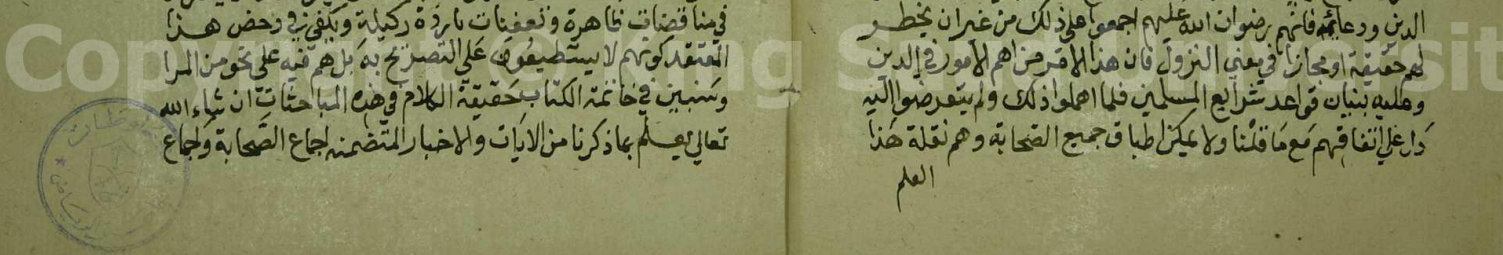 الدين ودعائمه فانهم رضوان الله عليهم اجمعوا على ذلك من غير ان يخطر
لهم حقيقة او مجازا في يعني النزول فان هذا الامر من اهم الامور في الدين
وعليه بنيان قواعد شرايع المسلمين فلما اهملوا ذلك ولم يتعرضوا اليه
دل على اتفاقهم مع ما قلنا ولا يمكن اطباق جميع الصحابة وهم نقلة هذا
العلم
في مناقضات ظاهرة وتعفينات باردة ركيلة ويكفي في دحض هذا
المعتقد كونهم لا يستطيعون على التصريح به بل هم فيه على نحو من المرا
وسنبين في خاتمة الكتاب حقيقة الكلام في هذه المباحثات ان شاء الله
تعالى يعلم بما ذكرنا من الايات والاخبار المتضمنه اجماع الصحابة واجماع